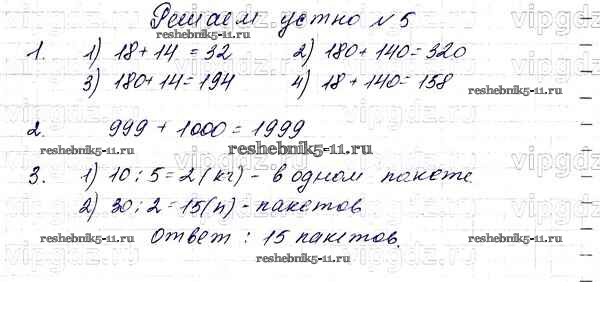 Решаем устно №5
1. 1) 18+14 = 32 2) 180+140=320
3) 180+14=194 4) 18+140=158
2. 999 + 1000 = 1999
3. 1) 10:5=2(кг) - в одном пакете
2) 30:2=15(п) - пакетов
Ответ: 15 пакетов.
vipgdz.ru
reshebnik5-11.ru
reshebnik5-11.ru
reshebnik5-11.ru
reshebnik5-11.ru
reshebnik5-11.ru
reshebnik5-11.ru